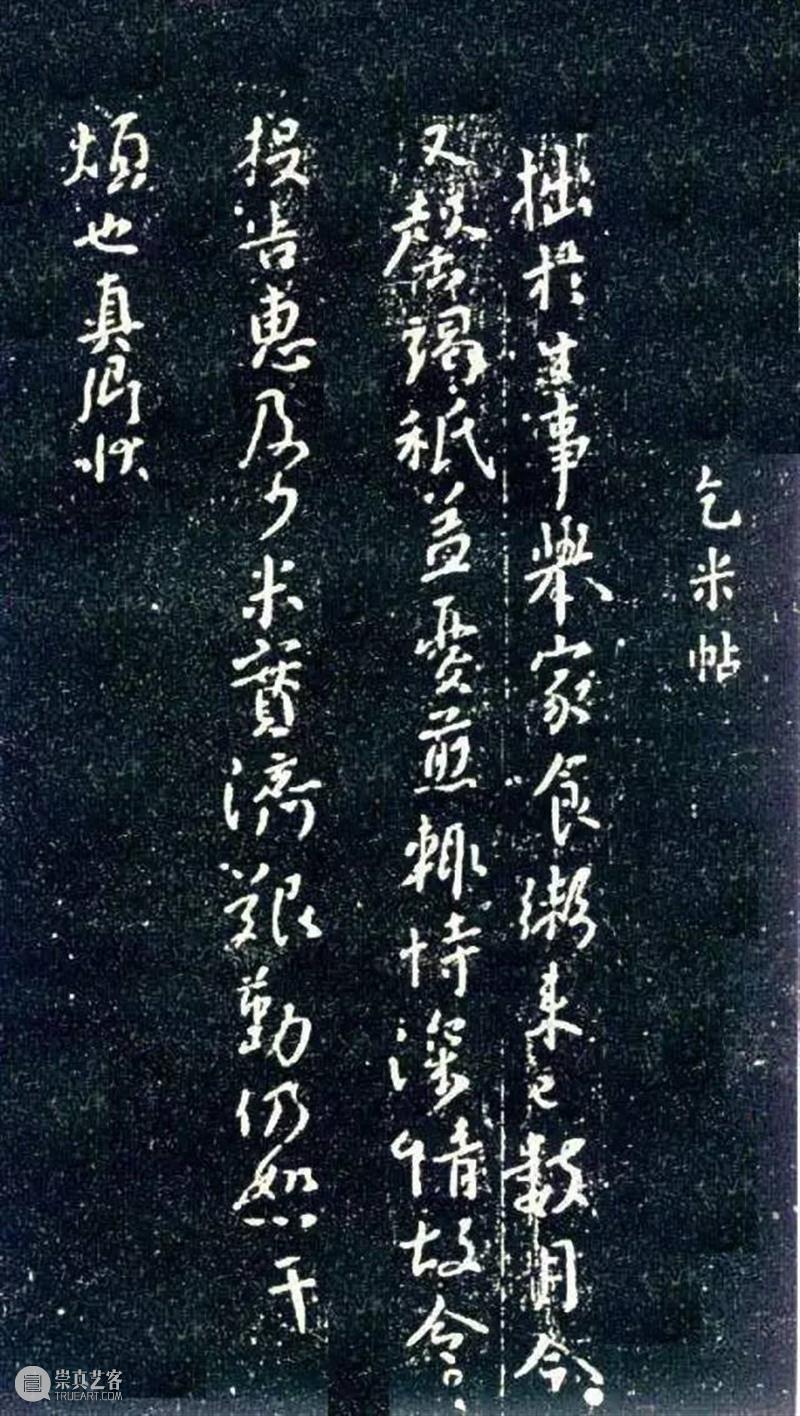 乞米帖
拙於生事舉家食粥来已數月今
又罄竭秪益憂煎輒恃深情故令
投告惠及少米實濟艱勤仍恕干
煩也真卿狀
崇真艺客
TRUEART.COM